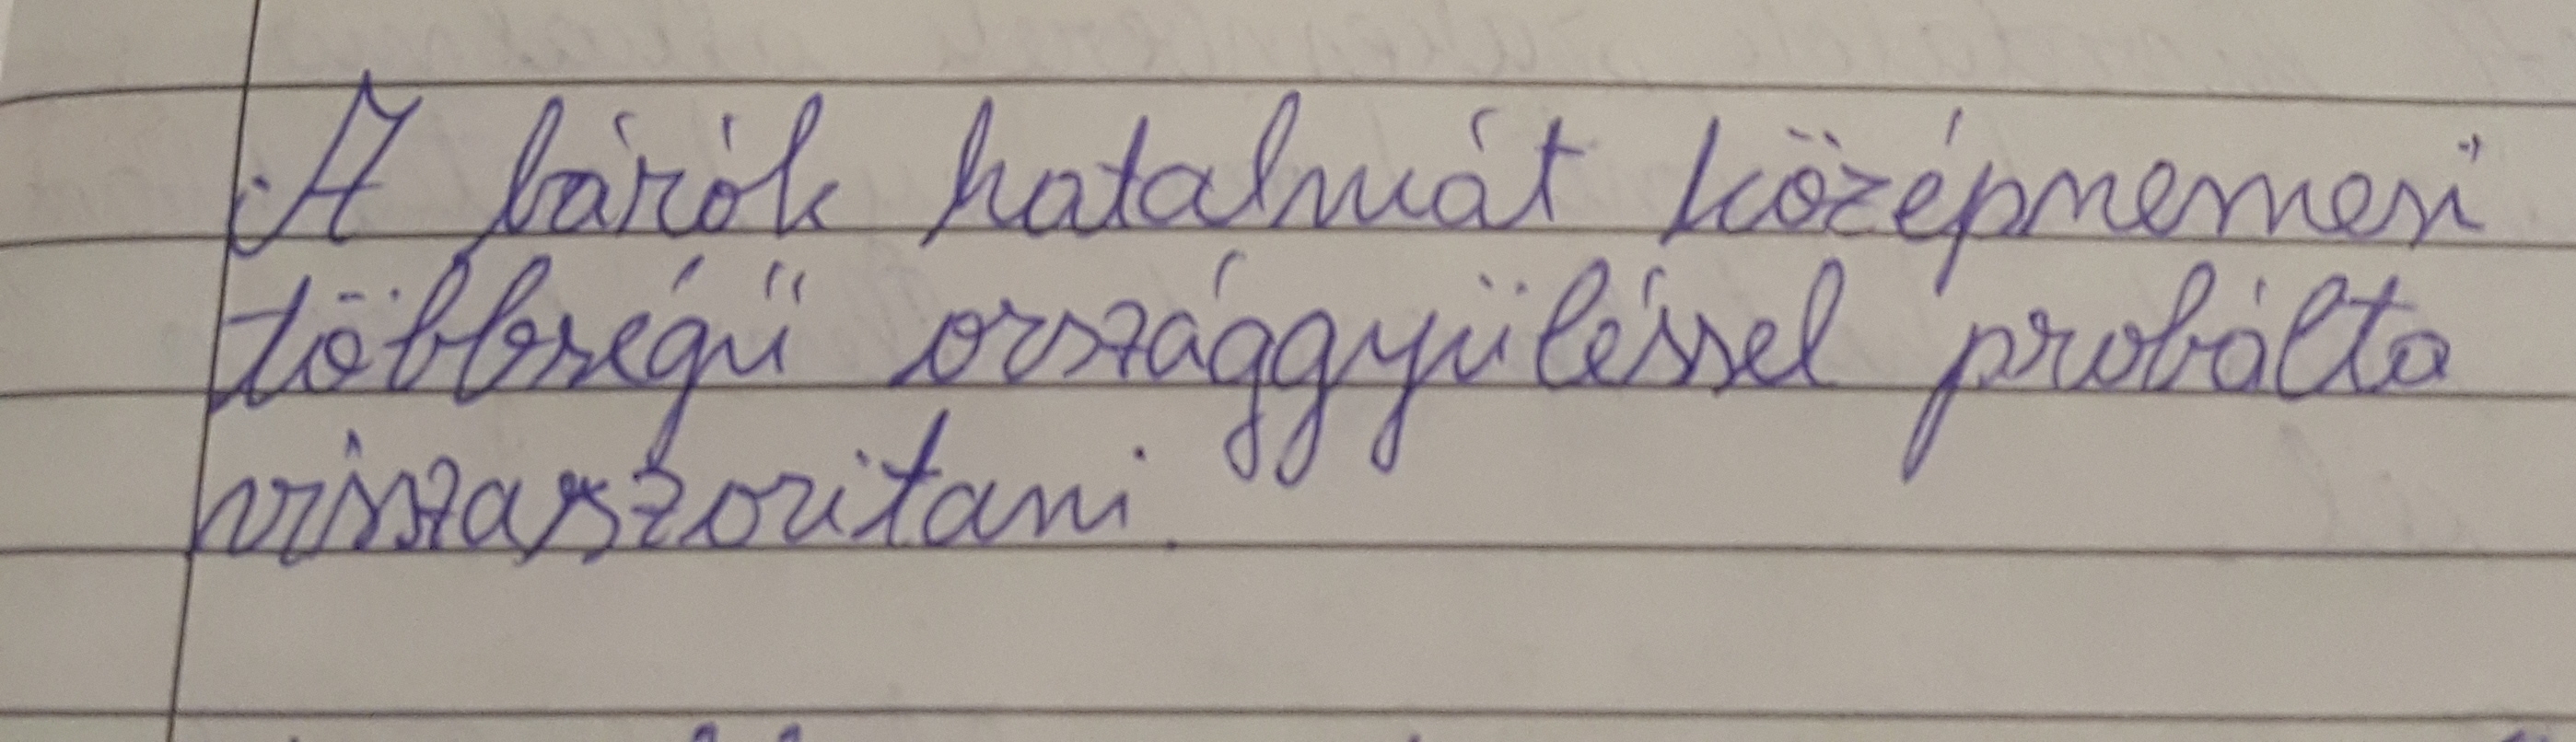 A bárók hatalmát középnemesi
többségű országgyüléssel probálta
visszaszoritani.